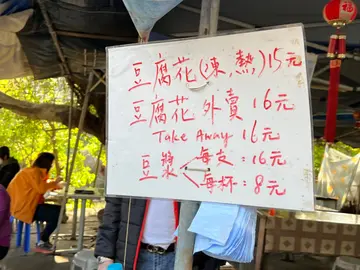 豆腐花(凍,熱)15元
豆腐花外賣16元
Take Away 16元
豆漿 每支:16元
每杯:8元
福